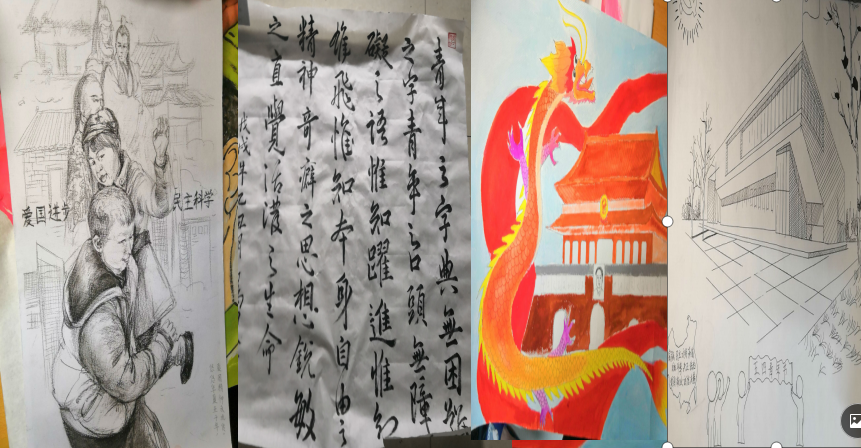 爱国进步
民主科学
青年之字典無困難
之字青年之口頭無障
礙之語惟知躍進惟知
雄飛惟知本身自由之
精神奇癖之思想銳敏
之直覺活潑之生命
戊戌年